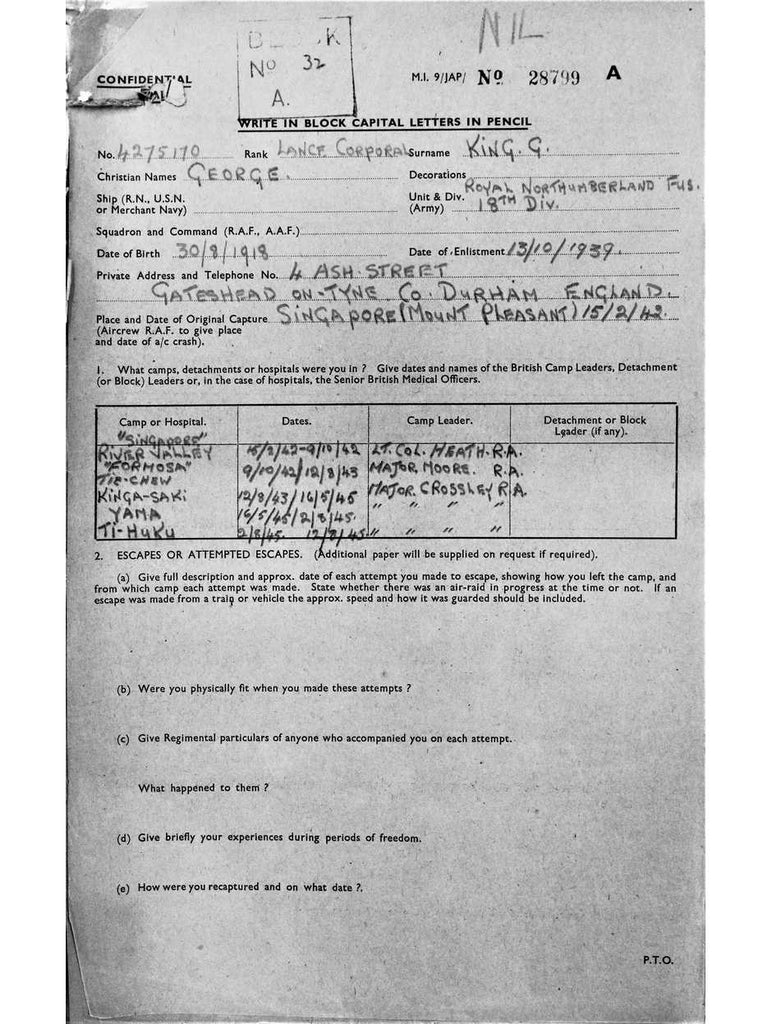 NIL
BLOCK
No 32
A.
CONFIDENTIAL
M.I. 9/JAP/ No 28799 A
WRITE IN BLOCK CAPITAL LETTERS IN PENCIL
No. 4275170 Rank LANCE CORPORAL Surname KING. G.
Christian Names GEORGE. Decorations
Ship (R.N., U.S.N. or Merchant Navy) Unit & Div. (Army) ROYAL NORTHUMBERLAND FUS.
18TH DIV.
Squadron and Command (R.A.F., A.A.F.)
Date of Birth 30/8/1918 Date of Enlistment 13/10/1939.
Private Address and Telephone No. 4 ASH STREET
GATESHEAD ON-TYNE CO. DURHAM ENGLAND.
Place and Date of Original Capture SINGAPORE (MOUNT PLEASANT) 15/2/42.
(Aircrew R.A.F. to give place
and date of a/c crash).
1. What camps, detachments or hospitals were you in ? Give dates and names of the British Camp Leaders, Detachment
(or Block) Leaders or, in the case of hospitals, the Senior British Medical Officers.
Camp or Hospital. Dates. Camp Leader. Detachment or Block Leader (if any).
"SINGAPORE"
RIVER VALLEY 15/2/42-9/10/42 LT. COL. HEATH. R.A.
"FORMOSA" 9/10/42/12/8/43 MAJOR MOORE. R.A.
TIE-CHEW
KINGA-SAKI 12/8/43/16/5/45 MAJOR. CROSSLEY R.A.
YAMA 16/5/45/2/8/45. " " " "
TI-HUKU 2/8/45. 12/8/45 " " " "
2. ESCAPES OR ATTEMPTED ESCAPES. (Additional paper will be supplied on request if required).
(a) Give full description and approx. date of each attempt you made to escape, showing how you left the camp, and
from which camp each attempt was made. State whether there was an air-raid in progress at the time or not. If an
escape was made from a train or vehicle the approx. speed and how it was guarded should be included.
(b) Were you physically fit when you made these attempts ?
(c) Give Regimental particulars of anyone who accompanied you on each attempt.
What happened to them ?
(d) Give briefly your experiences during periods of freedom.
(e) How were you recaptured and on what date ?.
P.T.O.